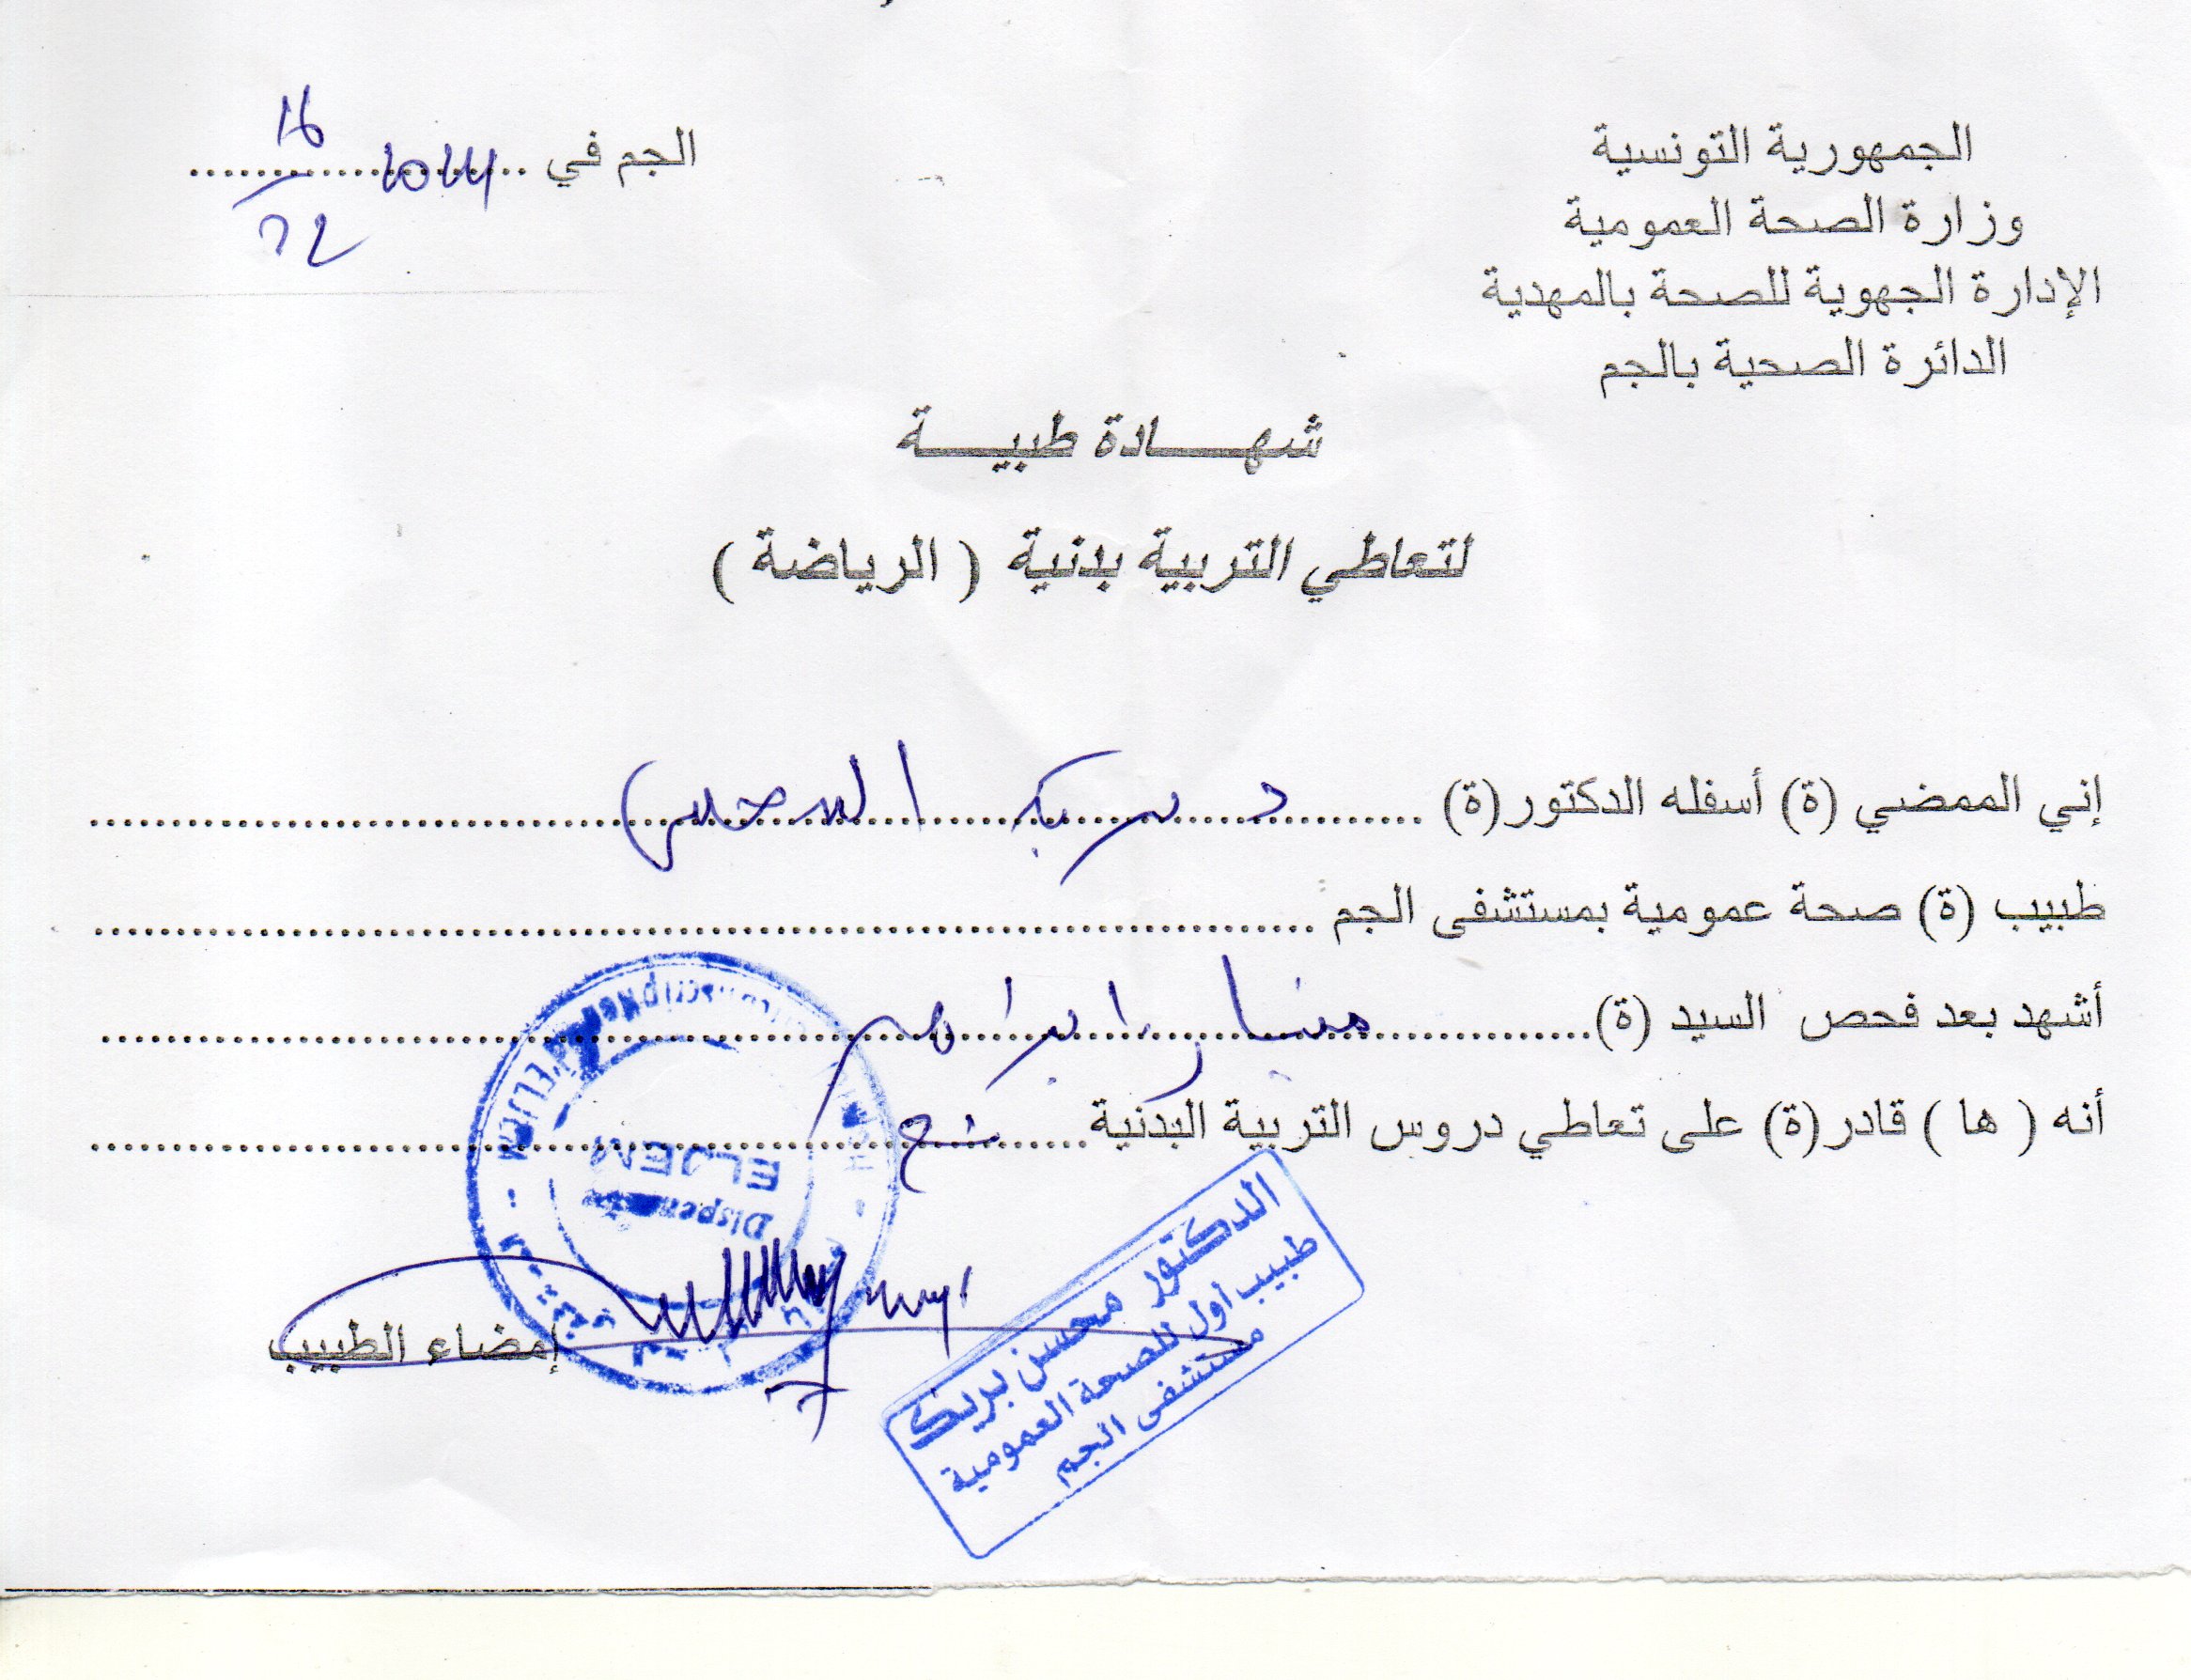 الجمهورية التونسية
وزارة الصحة العمومية
الإدارة الجهوية للصحة بالمهدية
الدائرة الصحية بالجم
الجم في ....................
16
شهـــــادة طبيـــــة
لتعاطي التربية بدنية ( الرياضة )
إني الممضي (ة) أسفله الدكتور(ة) ........ د بريك المحسن ........
طبيب (ة) صحة عمومية بمستشفى الجم ....................
أشهد بعد فحص السيد (ة)....................
أنه ( ها ) قادر(ة) على تعاطي دروس التربية البدنية....................
إمضاء الطبيب
Dispen
ELJEM
الدكتور محسن بريك
طبيب أول للصحة العمومية
مستشفى الجم